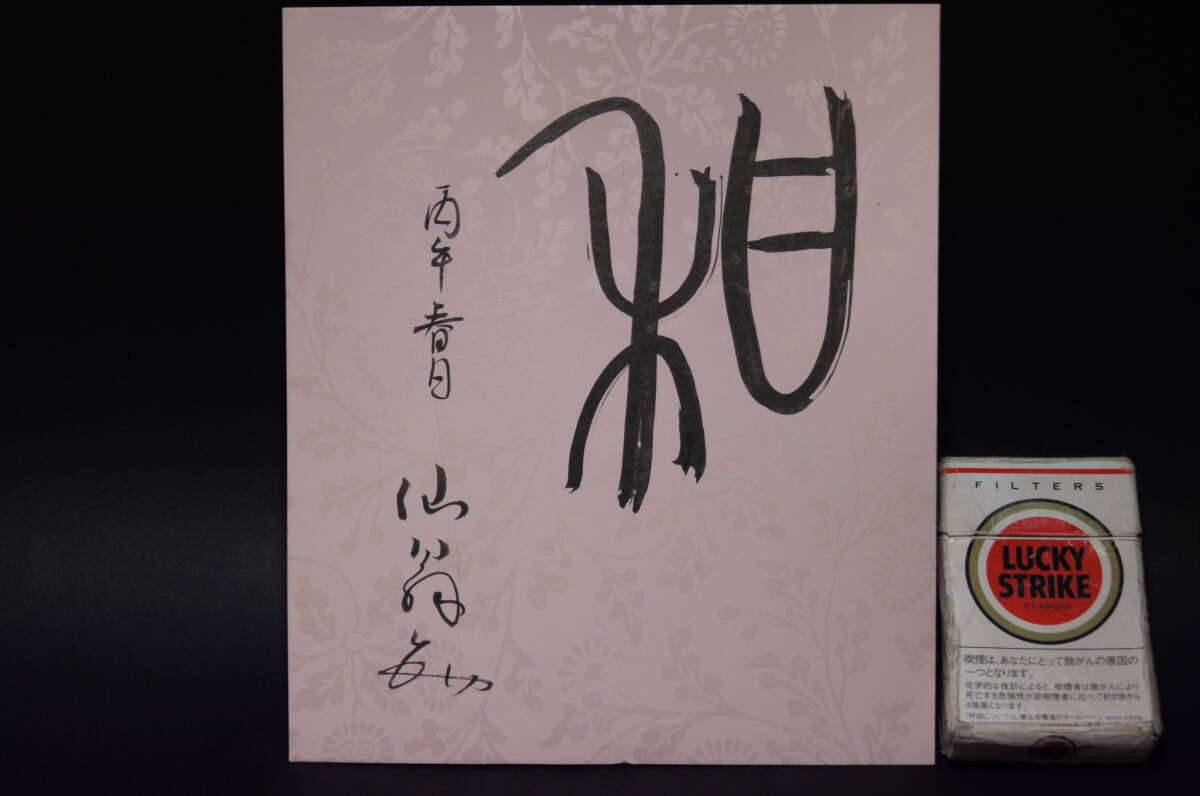 丙午春日
仙翁
FILTERS
LUCKY
STRIKE
IT'S TOASTED
喫煙は、あなたにとって肺がんの原因の
一つとなります。
疫学的な推計によると、喫煙者は肺がんにより
死亡する危険性が非喫煙者に比べて約2倍から
4倍高くなります。
(詳細については、厚生労働省のホームページ